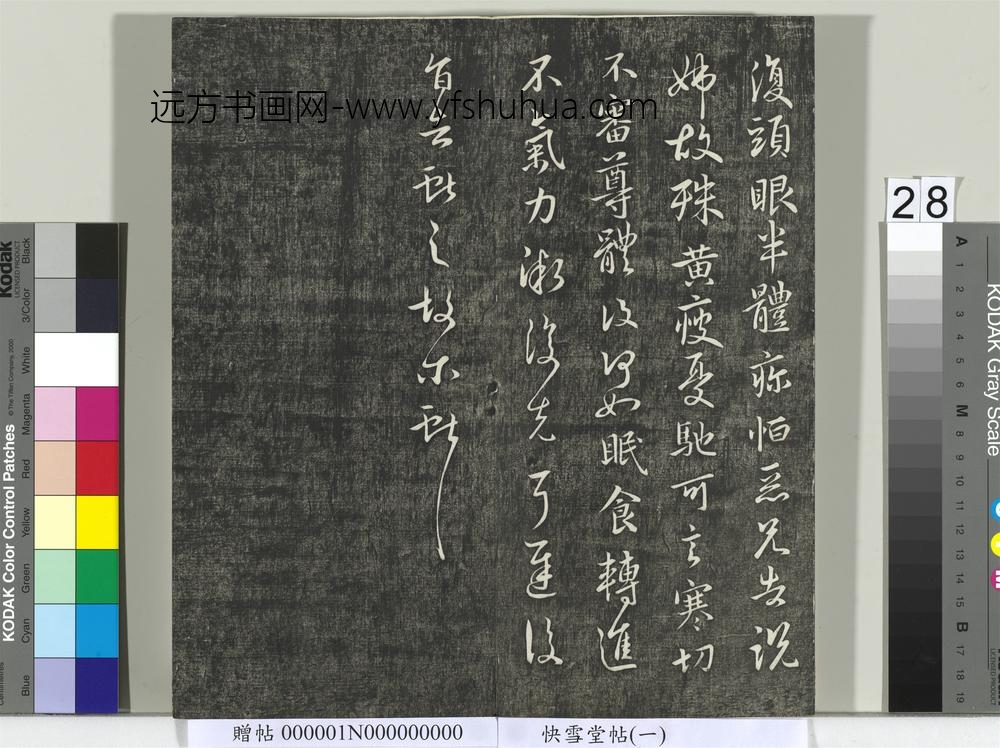 復頭眼半體疼恒惡兄告說
姊故殊黃瘦憂馳可言寒切
不審尊體復何如眠食轉進
不氣力漸復耳遲復
告
远方书画网-www.yfshuhua.com
28
Kodak
LICENSED PRODUCT
© The Tiffen Company, 2000
KODAK Color Control Patches
Blue Cyan Green Yellow Red Magenta White 3/Color Black
KODAK Gray Scale
A 1 2 3 4 5 6 M 8 9 10 11 12 13 14 15 B 17 18 19
贈帖 000001N000000000
快雪堂帖(一)